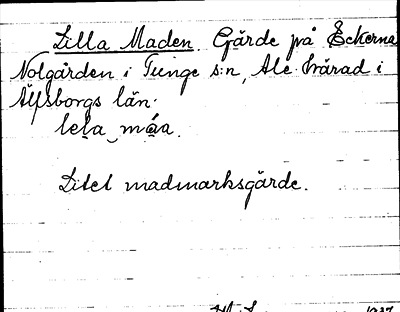 Lilla Maden. Gärde på Eckerna
Nolgården i Tunge s:n, Ale härad i
Älfsborgs län.
lela måa.
Litet madmarksgärde.
1937